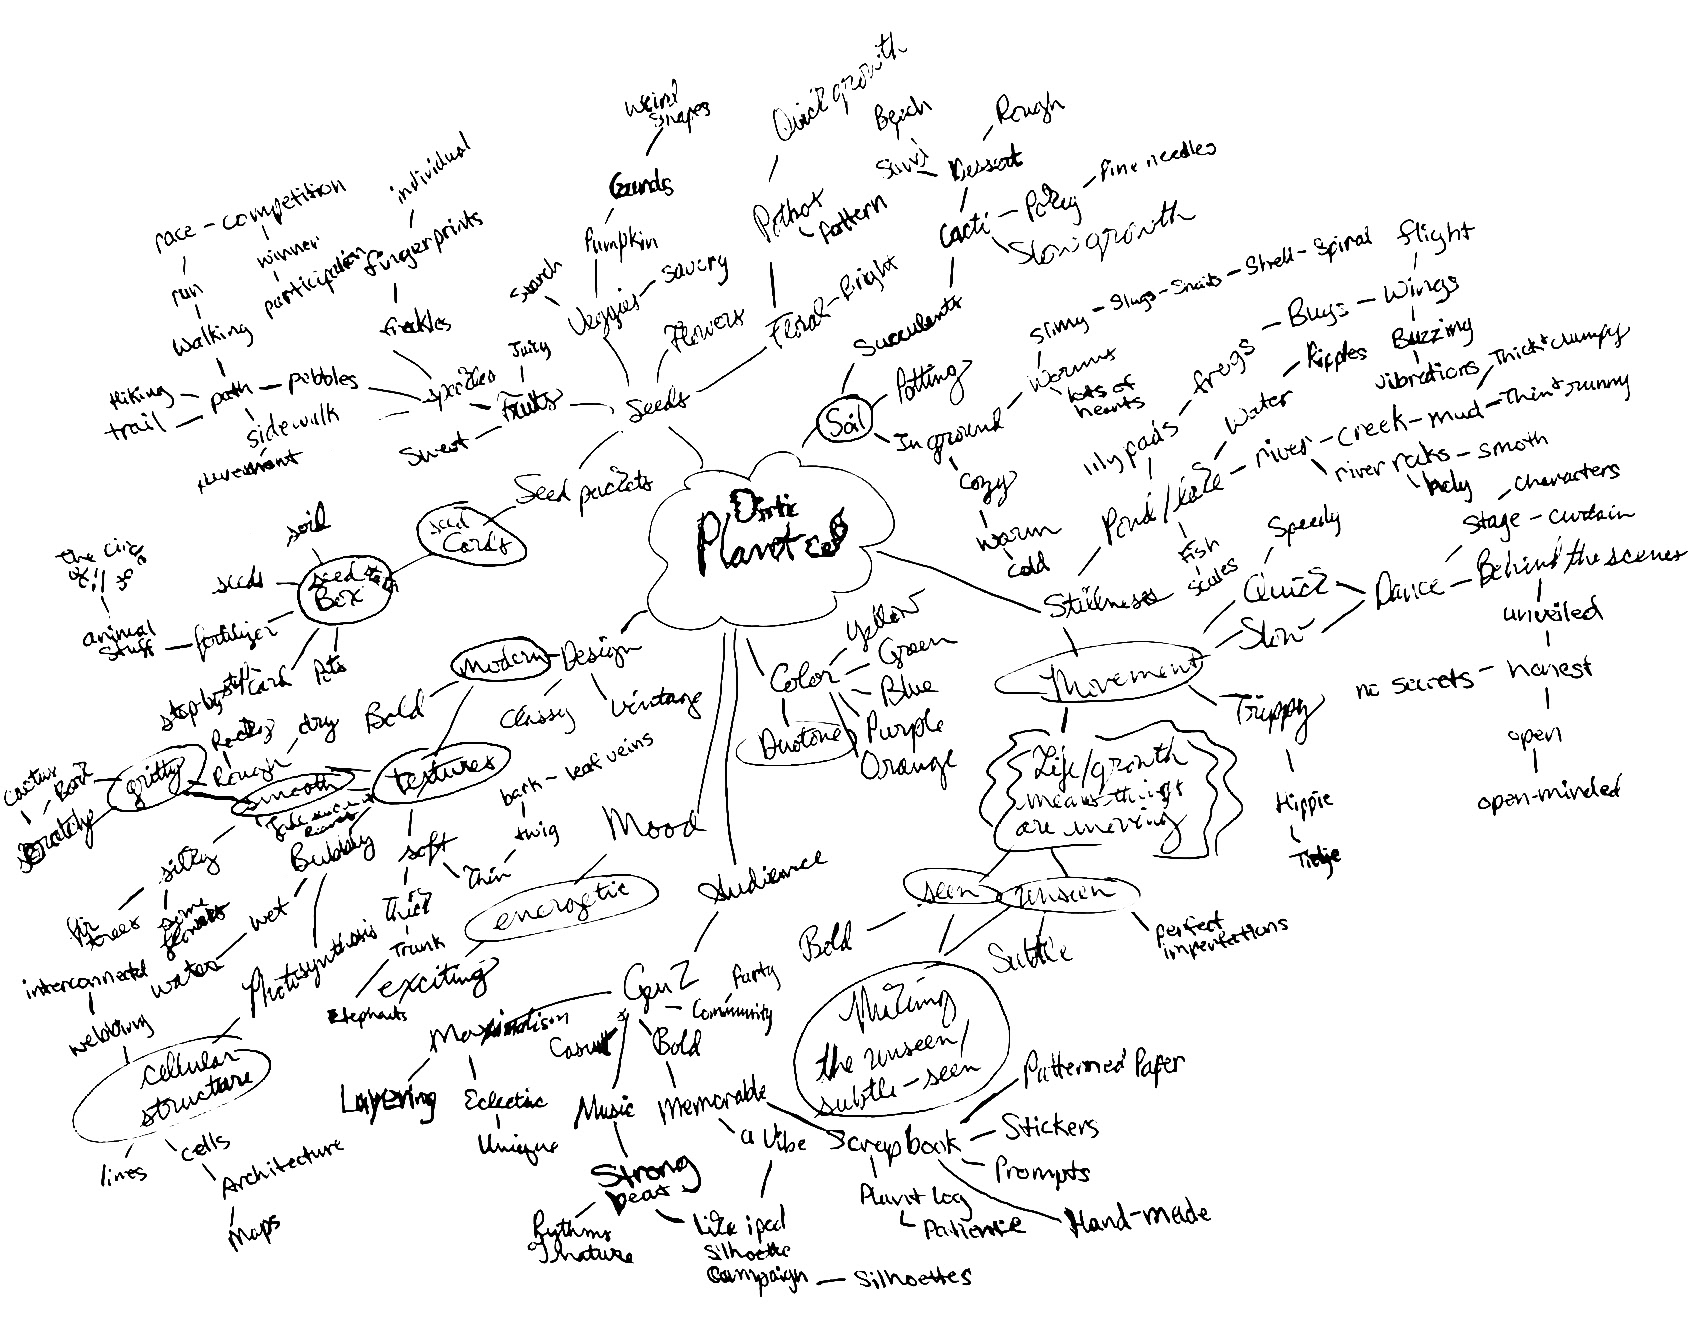 Quick growth
Weird
shapes
Beach
Rough
Sand
Dessert
Pine needles
individual
Pattern
Cacti - Pokey
Slow growth
race - competition
winner
participation
fingerprints
Pumpkin
Starch
Veggies - savory
run
walking
freckles
Juicy
Flowers
Floral - Bright
Succulents
Slimy - Slugs - Snails - Shell - Spiral
flight
Bugs - Wings
Buzzing
vibrations
Ripples
Thick + clumpy
frogs
worms
lots of
hearts
Hiking
trail - path - pebbles
sidewalk
Sweet
Fruits
Seeds
Soil
Potting
In ground
cozy
warm
cold
lily pads
Water
river - creek - mud - Thin + runny
river roks - smoth
Pond/lake
Fish
scales
Speedy
characters
Stage - curtain
Behind the scenes
Seed packets
seed
Cards
soil
seeds
Box
fertilizer
animal
stuff
Pots
Stillness
Quick
Slow
Dance
unveiled
no secrets - honest
open
open-minded
Movement
Trippy
Hippie
Color
Yellow
Green
Blue
Purple
Orange
Duotone
modern - Design
Bold
Classy
Vintage
Rough
dry
gritty
smooth
textures
silky
Bubbly
soft
bark - leaf veins
twig
Thin
Thick
Trunk
Elephants
wet
water
some
flowers
interconnected
webbing
Photosynthesis
cellular
structure
lines
cells
Architecture
maps
Mood
energetic
exciting
Audience
Gen Z
Party
Community
Casual
Bold
Layering
Eclectic
Unique
Music
Memorable
a Vibe
Strong
beat
Rythms
of nature
Like ipod
Silhoette
Campaign - Silhoettes
Life/growth
means things
are moving
seen
unseen
Bold
Subtle
perfect
imperfections
Making
the unseen/
subtle - seen
Scrapbook
Patterned Paper
Stickers
Prompts
Hand-made
Plant Log
Patience